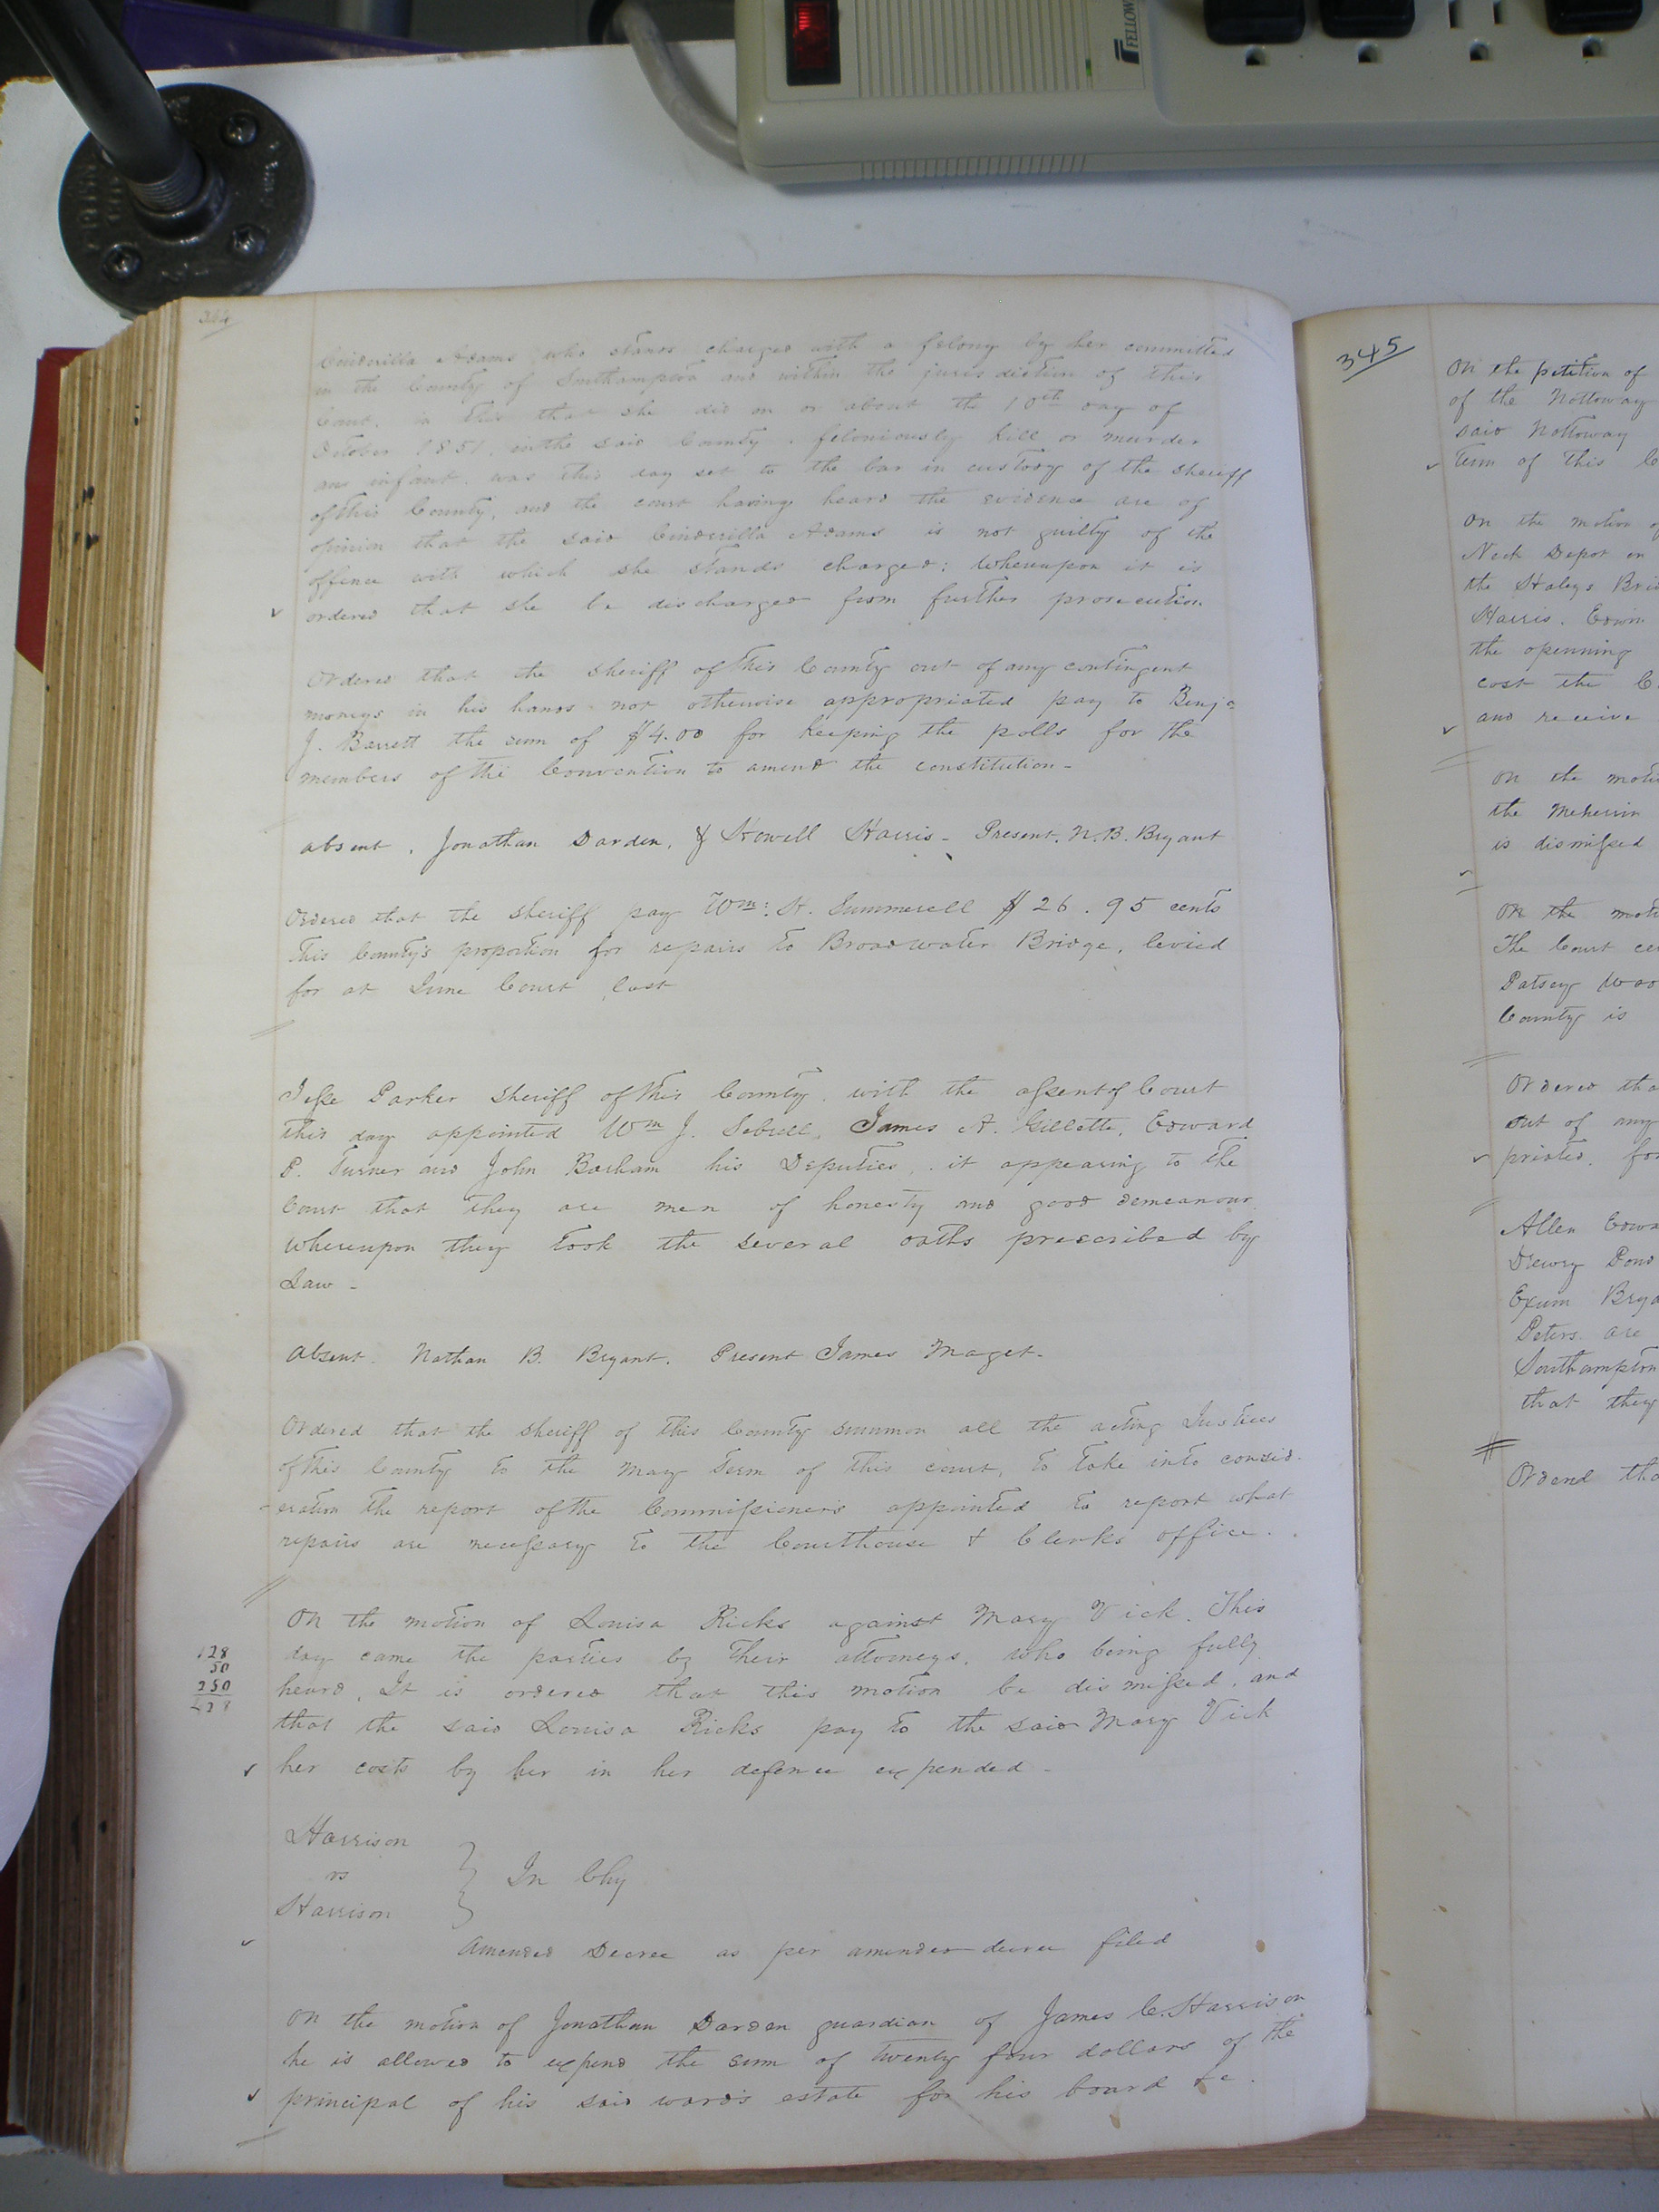 344
Cinderilla Adams who stands charged with a felony by her committed
in the County of Southampton and within the jurisdiction of this
Court, in this that she did on or about the 10th day of
October 1851, in the said County, feloniously kill or murder
an infant, was this day set to the bar in custody of the sheriff
of this County, and the court having heard the evidence are of
opinion that the said Cinderilla Adams is not guilty of the
offence with which she stands charged: Whereupon it is
ordered that she be discharged from further prosecution
Ordered that the sheriff of this County out of any contingent
moneys in his hands not otherwise appropriated pay to Benja
J. Barrett the sum of $4.00 for keeping the polls for the
members of the Convention to amend the constitution-
absent, Jonathan Darden, & Howell Harris- Present, N.B. Bryant
Ordered that the sheriff pay Wm: H. Summerell $26.95 cents
this County's proportion for repairs to Broadwater Bridge, levied
for at June Court last
Jesse Parker sheriff of this County, with the assent of Court
this day appointed Wm J. Sebrell, James A. Gillette, Edward
P. Turner and John Barham his Deputies, it appearing to the
Court that they are men of honesty and good demeanour
Whereupon they took the several oaths prescribed by
Law-
Absent. Nathan B. Bryant. Present James Maget-
Ordered that the sheriff of this County summon all the acting Justices
of this County to the May Term of this court, to take into consid-
-eration the report of the Commissioners appointed to report what
repairs are necessary to the Courthouse & Clerks office.
On the motion of Louisa Ricks against Mary Vick. This
day came the parties by their attorneys, who being fully
heard, It is ordered that this motion be dismissed, and
that the said Louisa Ricks pay to the said Mary Vick
her costs by her in her defence expended-
128
50
250
428
Harrison
vs
Harrison
In Chy
Amended Decree as per amended decree filed
On the motion of Jonathan Darden guardian of James C. Harrison
he is allowed to expend the sum of twenty four dollars of the
principal of his said ward's estate for his board &c.
345
On the petition of
of the Nottoway
said Nottoway
Term of this
On the motion
Neck Depot on
the Haleys
Harris. Edwin
the openning
cost the
and receive
On the
the Meherrin
is dismissed
On the
The Court
Patsey
County is
Ordered
out of any
priated,
Allen
Drewry
Exum
Peters are
Southampton
that they
Ordered
FELLOW